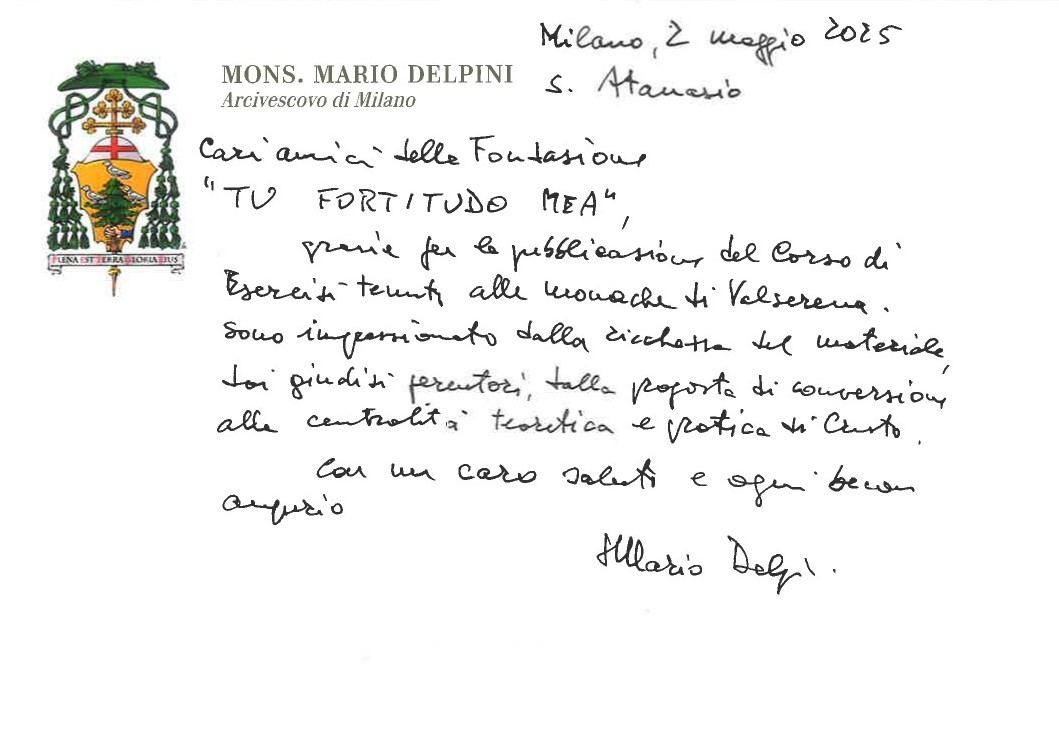 Milano, 2 maggio 2025
s. Atanasio
MONS. MARIO DELPINI
Arcivescovo di Milano
PLENA EST TERRA GLORIA EIUS
Cari amici della Fondazione
"TU FORTITUDO MEA",
grazie per la pubblicazione del Corso di
Esercizi tenuti alle monache di Valserena.
Sono impressionato dalla ricchezza del materiale,
dai giudizi perentori, dalla proposta di conversione
alla centralità teoretica e pratica di Cristo.
Con un caro saluto e ogni buon
augurio
+Mario Delpini.